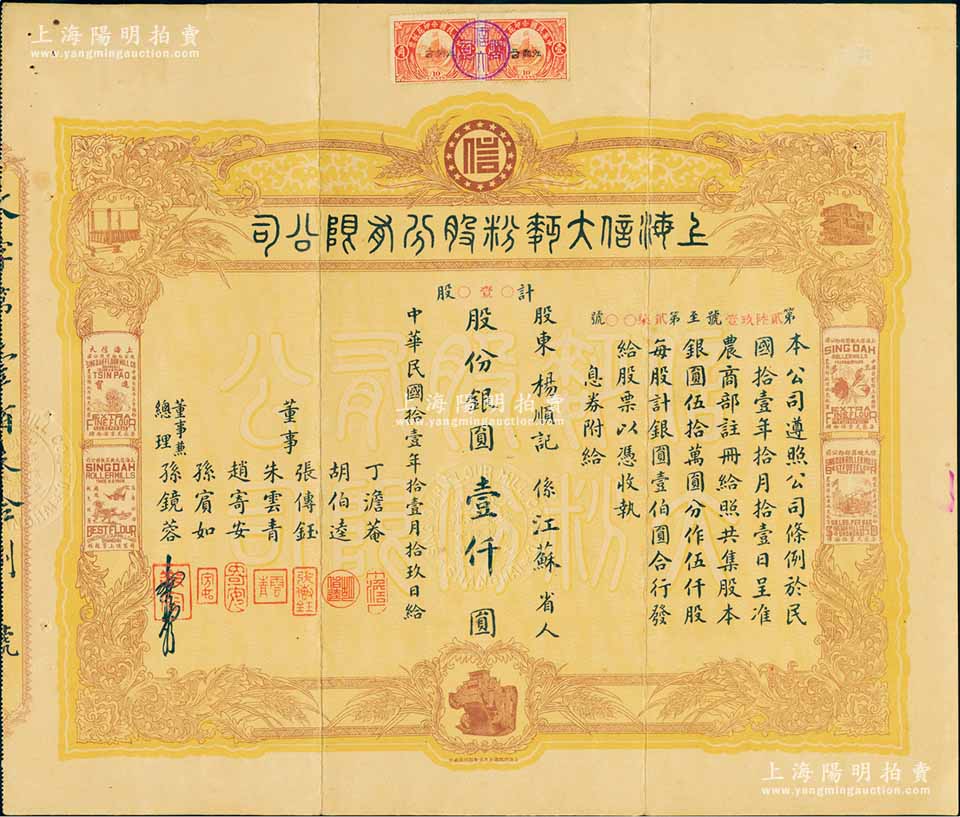 上海陽明拍賣
www.yangmingauction.com
信
上海信大麪粉股份有限公司
第貳陸玖壹號至第貳柒○○號
本公司遵照公司條例於民
國拾壹年拾月拾壹日呈准
農商部註冊給照共集股本
銀圓伍拾萬圓分作伍仟股
每股計銀圓壹伯圓合行發
給股票以憑收執
息券附給
股東 楊順記 係江蘇省人
計○壹○股
股份銀圓壹仟圓
中華民國拾壹年拾壹月拾玖日給
董事
丁澹菴
胡伯逵
張傳鈺
朱雲青
趙寄安
孫賓如
董事兼總理 孫鏡蓉
上海信大
TSIN PAO
EXTRA
FINE FLOUR
SING DAH
ROLLER MILLS
BEST FLOUR
SING DAH
ROLLER MILLS
EXTRA
FINE FLOUR
上海陽明拍賣
www.yangmingauction.com
上海陽明拍賣
www.yangmingauction.com